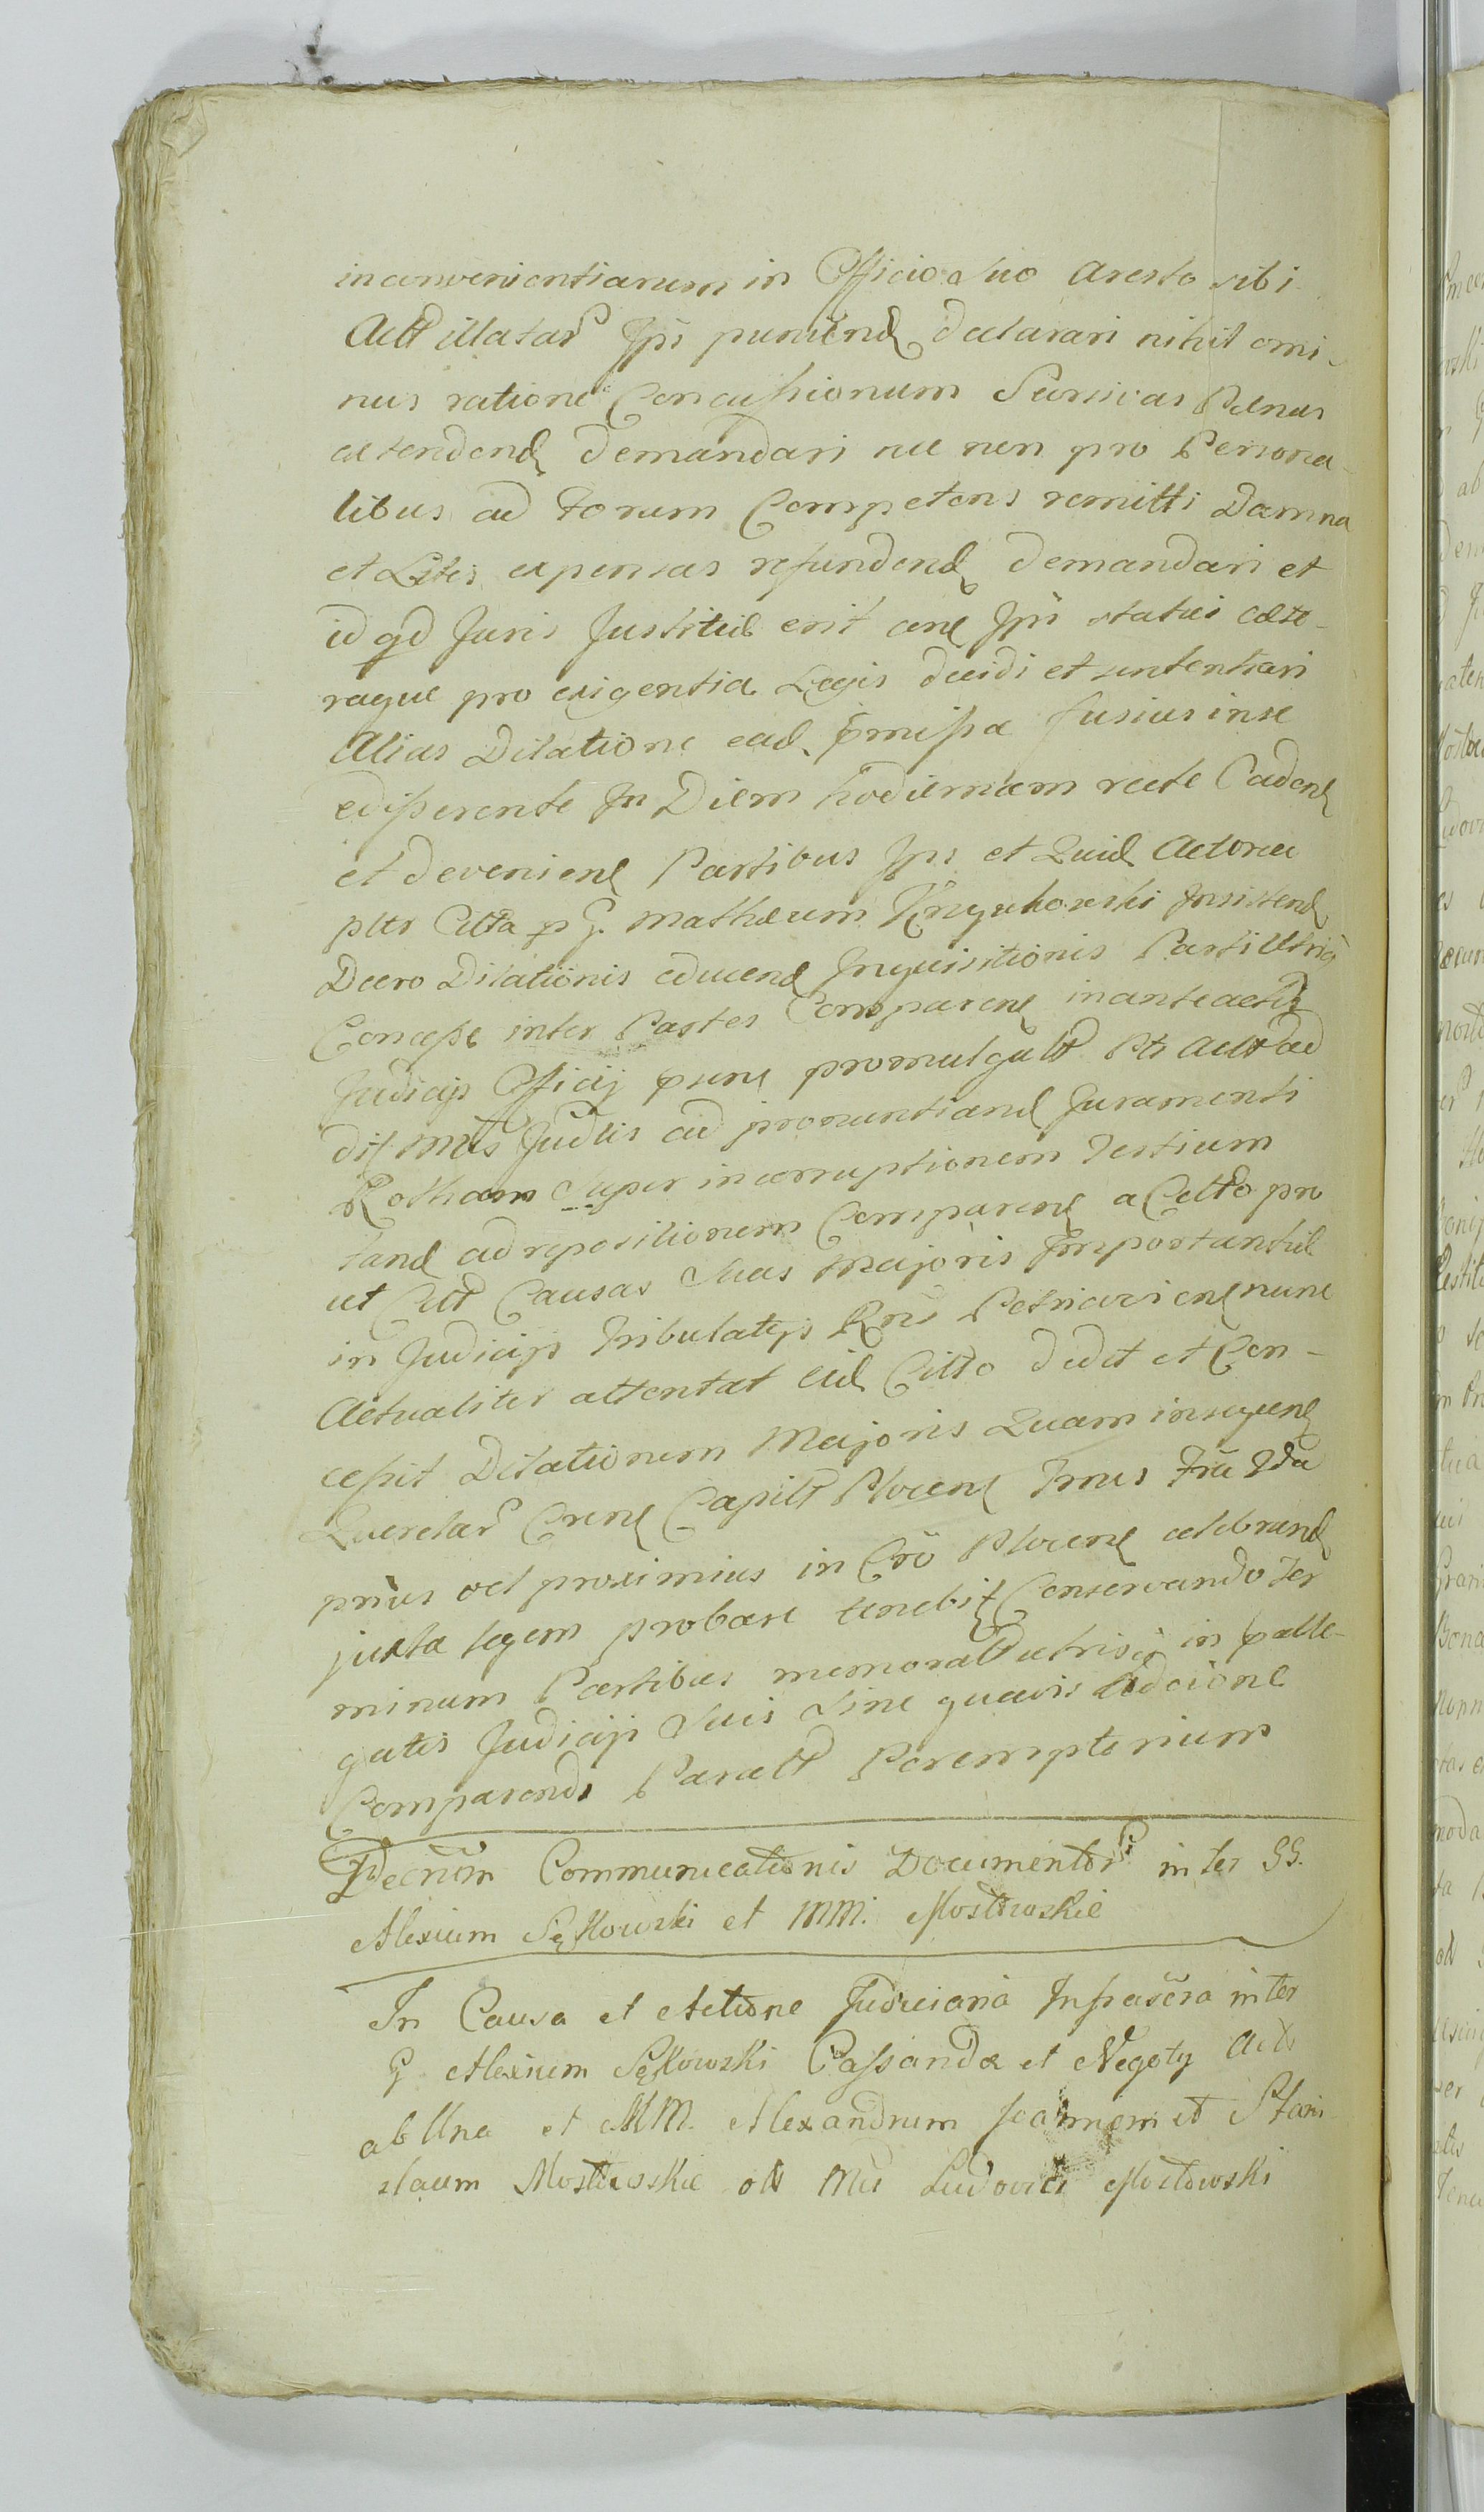 inconvenientiarum in Officio suo Aresto sibi
Actt illatar Jpi puniend declarari nihil omi-
nus ratione Concussionum Sursivas Paenas
extendend demandari nec non pro Persona-
libus ad Forum Competens remitti Damna
et Litis expensas refundend demandari et
id qd Juris Justitiae erit Jpi statui caete-
raque pro exigentia Legis decidi et sententiari
Alias Dilatione ead pmissa fusius in se
edisserente In Diem hodiernam recte Caden
et devenien Partibus Jps et Quid Actorea
pltr Citta p G. Mathaeum Insistend
Decro Dilationis educend Inquisitionis Parti Utriq
Concessae inter Partes Comparen in anteactis
Judicijs Officij psen promulgatt Pti Actt ad
Mtis Judlis ad pronuntiand Juramenti
Rotham super incorruptionem Testium
ad repositionem Comparen a Citto pro
ut Citt Causas suas Majoris Importantiae
in Judicijs Tribulatijs Rni Petricovien nunc
Actualiter attentat eid Citto dedit et Con-
cessit Dilationem Majoris Quam in sequen
Querelar Cren Capitt Plocen Tmis
prius vel proximius in Cro Plocen celebrand
juxta legem probare tenebit Conservando Ter
minum Partibus memoratt utrisq in palle-
gatis Judicijs suis sine quavis Adcione
Comparendi Paratt Peremptorium
Decrum Communicationis Documentor inter GG.
Alexium Sękowski et MM. Mostowskie
In Causa et Actione Judiciaria Infrascra inter
G Alexium Sękowski Cassandae et Negoty Actt
ab Una et MM. Alexandrum Joannem et Stani
slaum Mostowskie olt Mci Ludovici Mostowski